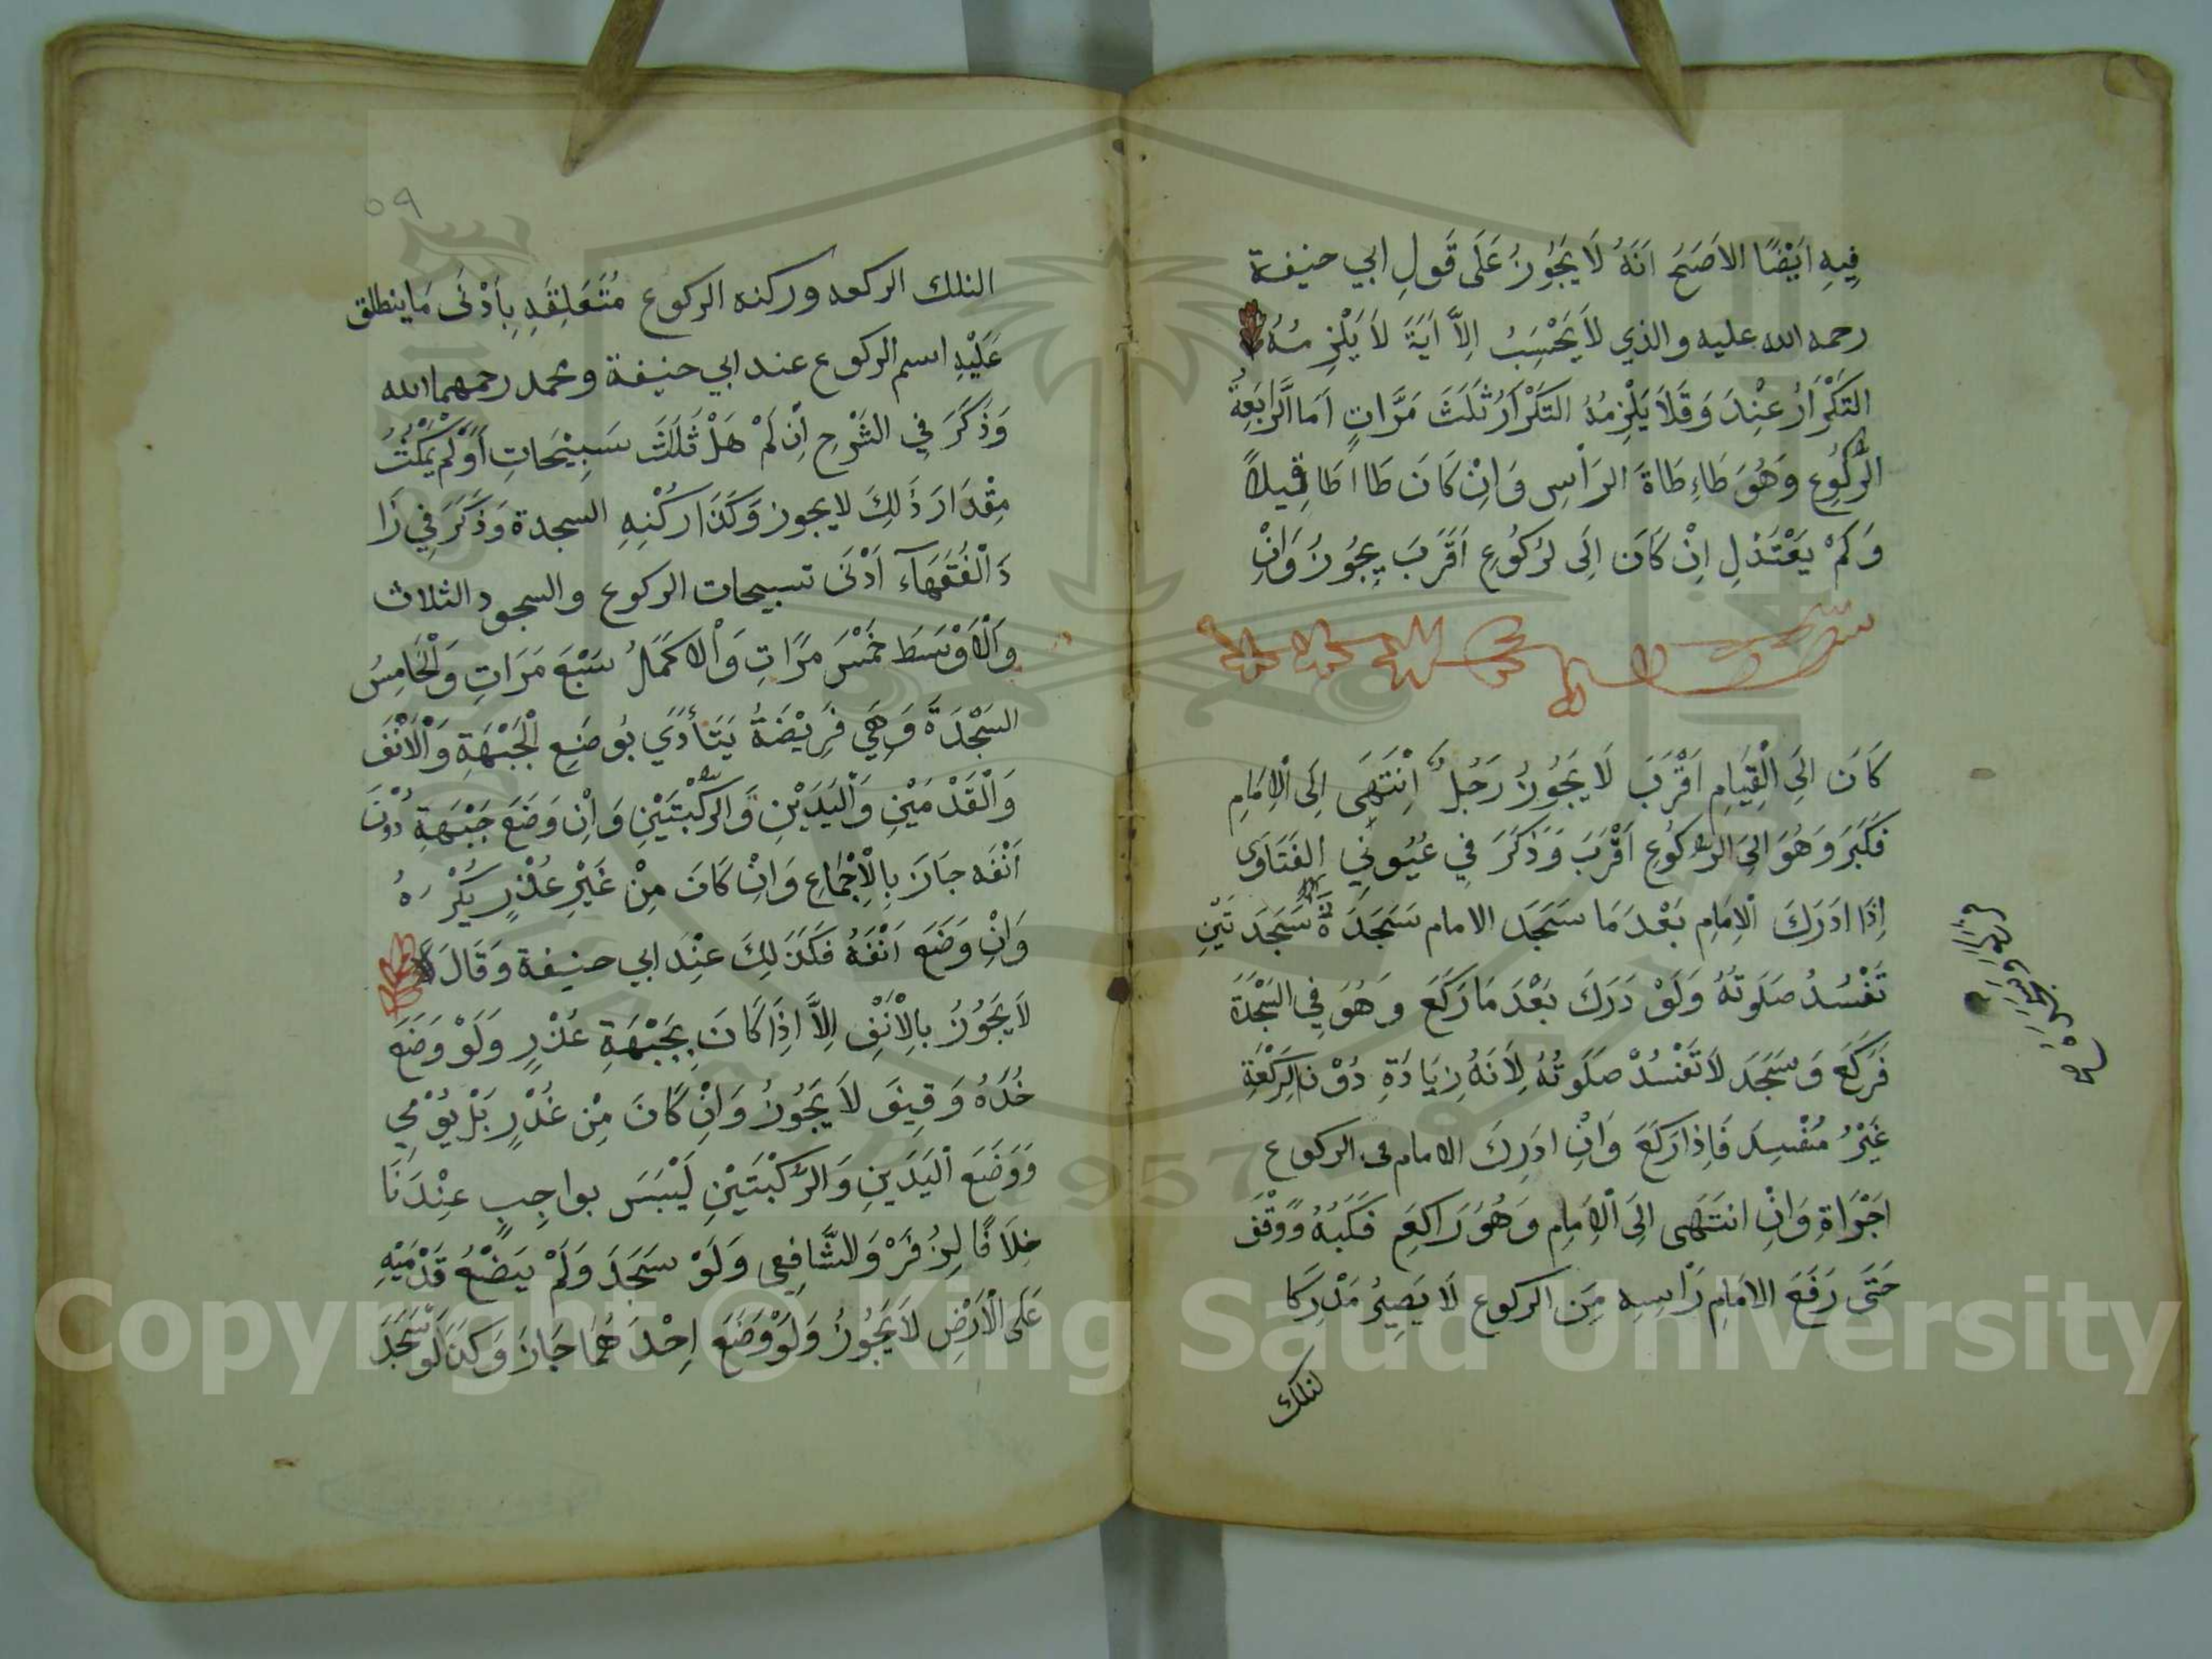 فِيهِ اَيْضًا الاَصَحُ اَنَهُ لَا يَجُوزُ عَلَى قَولِ ابي حنيفة
رحمه الله عليه والذي لاَ يَحْسِبُ اِلاَّ اَيَةَ لاَ يَلْزِمُهُ
التَكْرَارُ عِنْدَ وَقَلَا يَلْزِمُهُ التَكْرَارُ ثَلَثَ مَرَّاتٍ اَمَا الرَابَعِةُ
الرُكُوعِ وَهُوَ طَاءِ طَاةَ الرَاْسِ وَاِنْ كَانَ طَا اطَا قِيلاً
وَكَمْ يَعْتَذلِ اِنْ كَانَ اِلَى لرُكُوعِ اَقَرَبَ يجُوزُ وَاِنْ
كَانَ اِلَى الْقِيَامِ اَقْرَبَ لَا يَجُوزُ رَجُلُ اِنْتَهَى اِلَى الْاِمَامِ
فَكَبَرَ وَهُوَ الىَ الرُكُوعِ اَقْرَبَ وَذَكَرَ فِي عُيُونِي الفَتَاوَى
اِذَا ادَرَكَ الْاِمَامِ بَعْدَ مَا سَجَدَ الامام سَجَدَةً سَجَدَ تَيْنِ
تَفْسُدُ صَلَوتُهُ وَلَوْ دَرَكَ بَعْدَ مَا رَكَعَ وَهُوَ فِي السَجْدَة
فَرَكَعَ وَسَجَدَ لَا تَفْسُدْ صَلَوتُهُ لِاَنَهُ زِيَادَةِ دُوْنَ الرَكْعَةِ
غَيْرُ مُفْسِدَ فَاِذا رَكَعَ وَاِنْ ادَرِكَ الامام فى الركوع
اجْرَاةِ وَاِنْ انتَهَى اِلَى الْاِمَامِ وَهُوَ رَاكِعِ فَكَبَهُ وَوَقْفَ
حَتَى رَفَعَ الامَامِ رَاْسِهِ مِنَ الركوع لَا يَصِيرُ مَدْرِكَا
لتلك
٥٩
التلك الركعه وركنه الركوع مُتَعَلِقَهِ بِاَدْنَى مَا ينطلق
عَلَيْهِ اسم الركوع عند ابي حنيفة ومحمد رحمهما الله
وَذَكَرَ فِي الشَرْحِ اِنْ لَمْ هَلْ ثَلَاثَ سَبِيْحَاتِ اَوْلَمْ يَمْكُثُ
مِقْدَارَ ذَلِكَ لا يجوز وَكَذَا رُكْنِهِ السجدة وَذَكَرَ فِي زَا
دَ الْفُقَهَآءِ اَدْنَى تسبيحات الركوع والسجود الثلاث
وَالْاَوْسَطَ خَمْسَ مَرَّاتٍ وَالْاكَمَالُ سَبْعَ مَرَاتِ وَالْخَامِسُ
السَجْدَةَ وَهِيَ فَرِيْضَةُ يَتَأَدَّي بُوضَعِ الْجَبْهَةِ وَالْاَنْفَ
وَالْقَدْمَيْنِ وَالْيَدَيْنِ وَالرُكْبْتَيْنِ وَاِنْ وَضَعَ جَبْهَةِ دُوْنَ
اَنْفَه جَازَ بِالْاِجْمَاعِ وَاِنْ كَانَ مِنْ غَيْرِ عُذْرٍ يُكْرَهُ
وَاِنْ وَضَعَ اَنْفَهُ فَكَذَلِكَ عِنْدَ ابي حنيفة وَقَالَا
لاَ يَجُوزُ بالْاَنْفِ اِلاَّ اِذَا كَانَ بِجَبْهَةِ عُذْرٍ وَلَوْ وَضَعَ
خُدَهُ وَقِيَنَ لاَ يَجُوزُ وَاِنْ كَانَ مِنْ عُذْرٍ بَلْ يُوْمِي
وَوَضَعَ الْيَدَينِ وَالرُكْبْتَيْنِ لَيْسَ بواجِبٍ عِنْدَنَا
خِلاَفًا لِزُفَرْ وَلشَّافِعِي وَلَوْ سَجَدَ وَلَمْ يَضْعُ قَدْمَيْهِ
عَلَى الْاَرْضِ لاَ يَجُوزُ وَلَوْ وَضَعَ اِحْدَهُمَا جَازَ وَكذَ لَوْ سَجَدَ
Copyright © King Saud University
1957